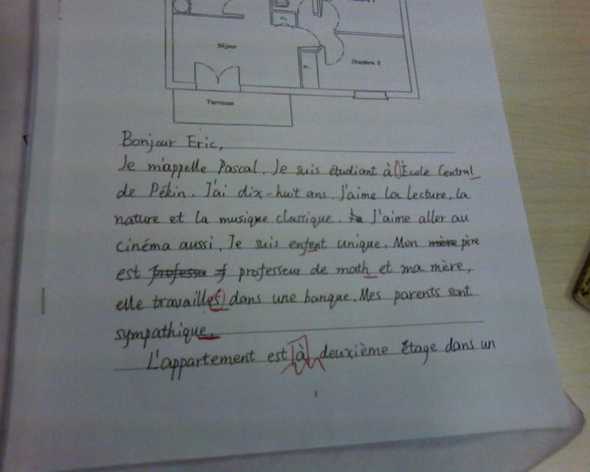 Séjour
Chambre 2
Terrasse
Bonjour Eric,
Je m'appelle Pascal. Je suis étudiant à l'Ecole Central
de Pékin. J'ai dix-huit ans. J'aime la lecture, la
nature et la musique classique. J'aime aller au
cinéma aussi. Je suis enfent unique. Mon père
est professeur de math et ma mère,
elle travailles dans une banque. Mes parents sont
sympathique.
L'appartement est à deuxième étage dans un